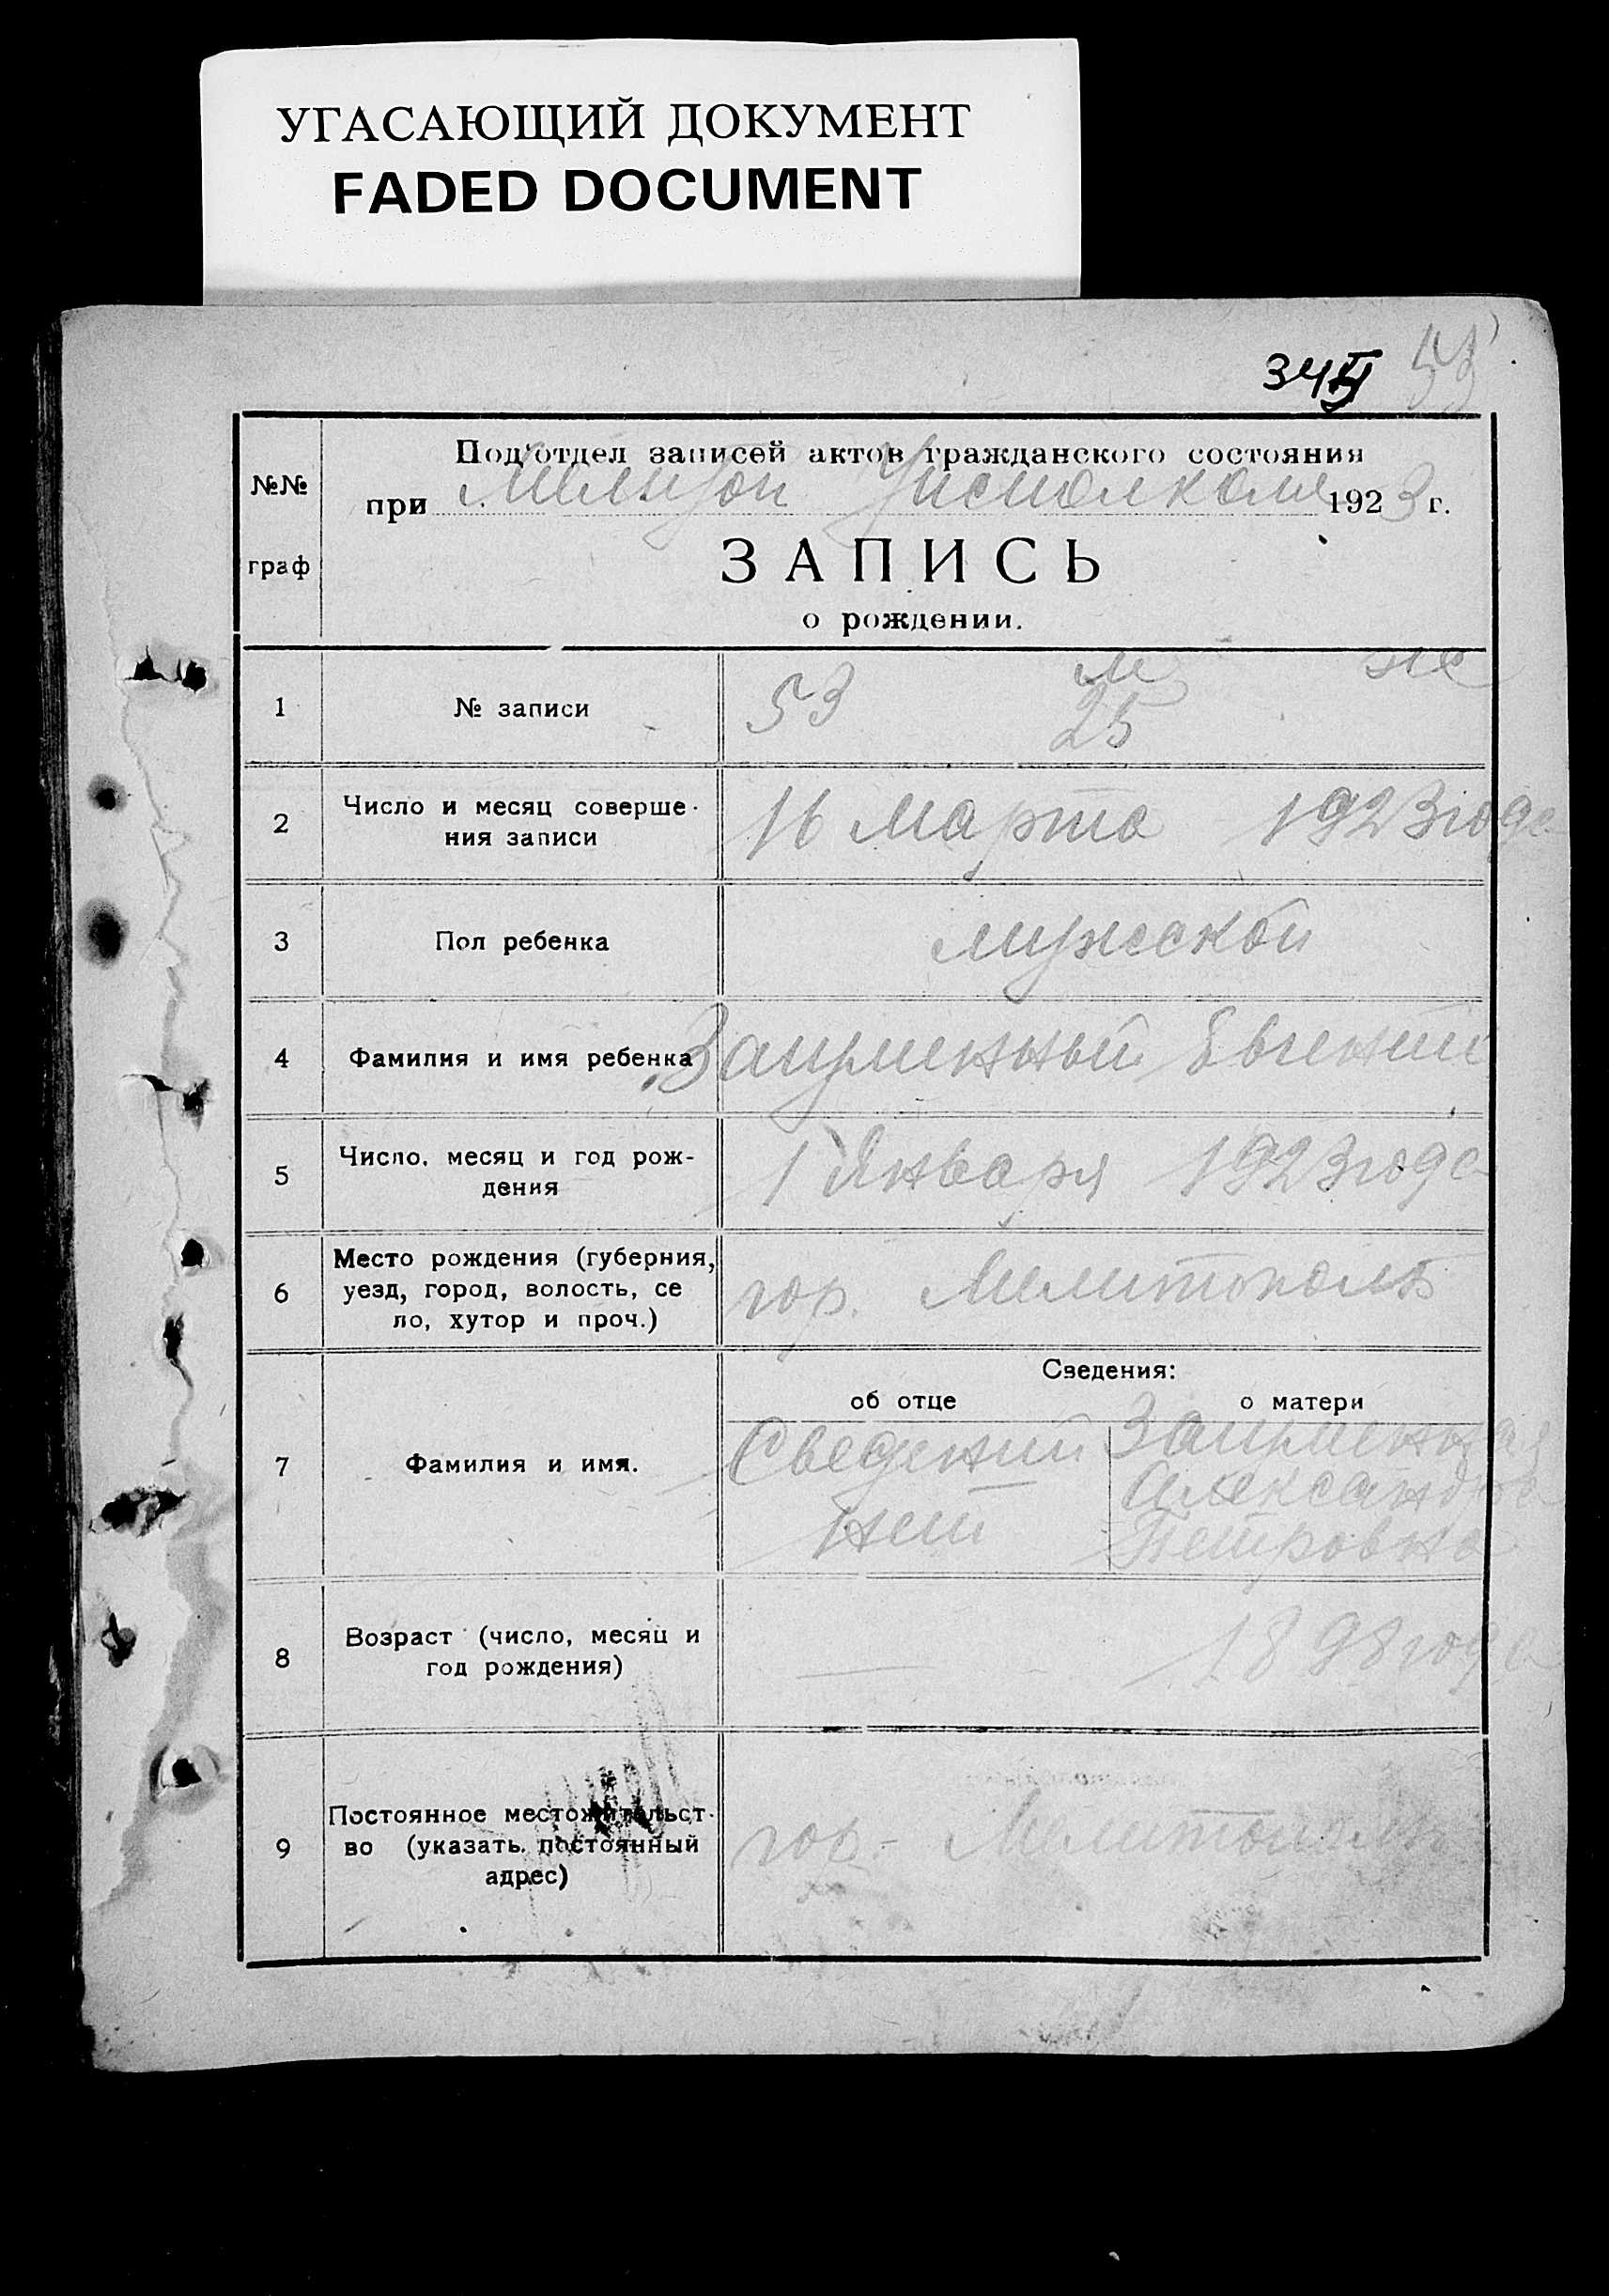 УГАСАЮЩИЙ ДОКУМЕНТ
FADED DOCUMENT
34 53
№№ граф
Под'отдел записей актов гражданского состояния
при Мелит Уисполкоме 1923 г.
ЗАПИСЬ
о рождении.
м же
1 № записи 53 25
2 Число и месяц соверше-
ния записи 16 Марта 1923 года
3 Пол ребенка мужской
4 Фамилия и имя ребенка Евгений
5 Число, месяц и год рож-
дения 1 Января 1923 года
6 Место рождения (губерния,
уезд, город, волость, се
ло, хутор и проч.) гор. Мелитополь
Сведения:
об отце о матери
7 Фамилия и имя. Сведений
нет Александра
Петровна
8 Возраст (число, месяц и
год рождения) — 1898 года
9 Постоянное местожительст-
во (указать постоянный
адрес) гор. Мелитополь